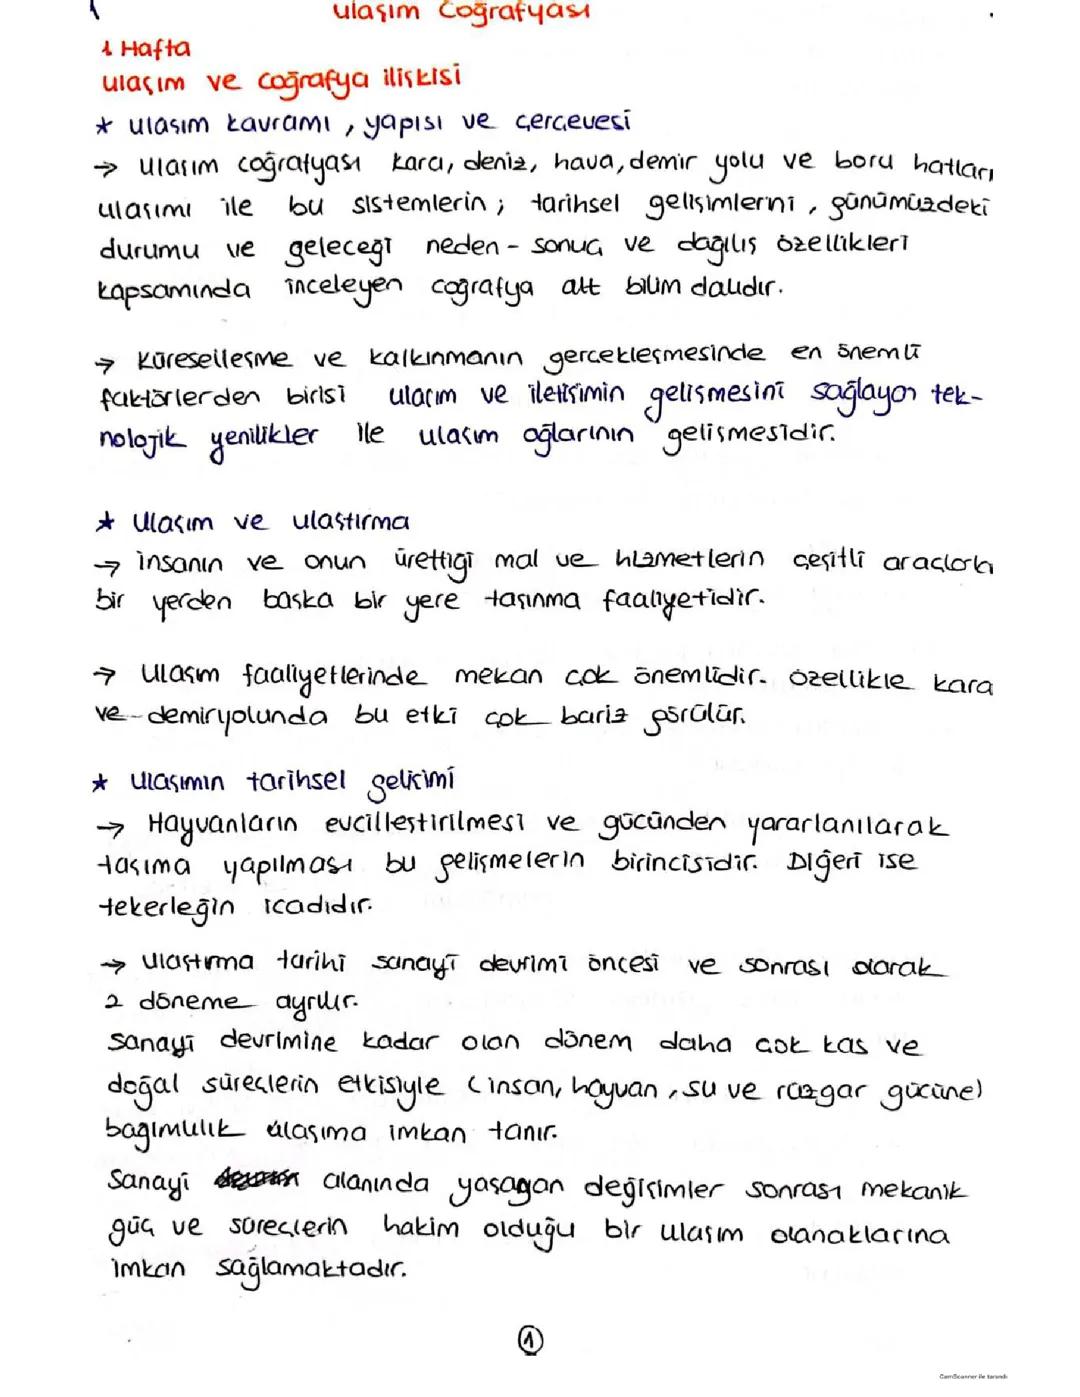 Ulaşım Coğrafyası
1 Hafta
Ulaşım ve Coğrafya ilişkisi
* Ulaşım kavramı, yapısı ve çerçevesi
→ Ulaşım coğrafyası kara, deniz, hava, demir yolu ve boru hatları
ulaşımı ile bu sistemlerin; tarihsel gelişimlerini, günümüzdeki
durumu ve geleceği neden-sonuç ve dağılış özellikleri
kapsamında inceleyen coğrafya alt bilim dalıdır.
→ Küreselleşme ve kalkınmanın gerçekleşmesinde en önemli
faktörlerden birisi ulaşım ve iletişimin gelişmesini sağlayan tek-
nolojik yenilikler ile ulaşım ağlarının gelişmesidir.
* Ulaşım ve ulaştırma
→ insanın ve onun ürettiği mal ve hizmetlerin çeşitli araçlarla
bir yerden başka bir yere taşınma faaliyetidir.
→ Ulaşım faaliyetlerinde mekan çok önemlidir. Özellikle kara
ve demiryolunda bu etki çok bariz görülür.
* Ulaşımın tarihsel gelişimi
→ Hayvanların evcilleştirilmesi ve gücünden yararlanılarak
taşıma yapılması bu gelişmelerin birincisidir. Diğeri ise
tekerleğin icadıdır.
→ Ulaştırma tarihi sanayi devrimi öncesi ve sonrası olarak
2 döneme ayrılır.
Sanayi devrimine kadar olan dönem daha çok kas ve
doğal süreçlerin etkisiyle (insan, hayvan, su ve rüzgar gücüne)
bağımlılık ulaşıma imkan tanır.
Sanayi alanında yaşagan değişimler sonrası mekanik
güç ve süreçlerin hakim olduğu bir ulaşım olanaklarına
imkan sağlamaktadır.
1
CamScanner ile tarandı